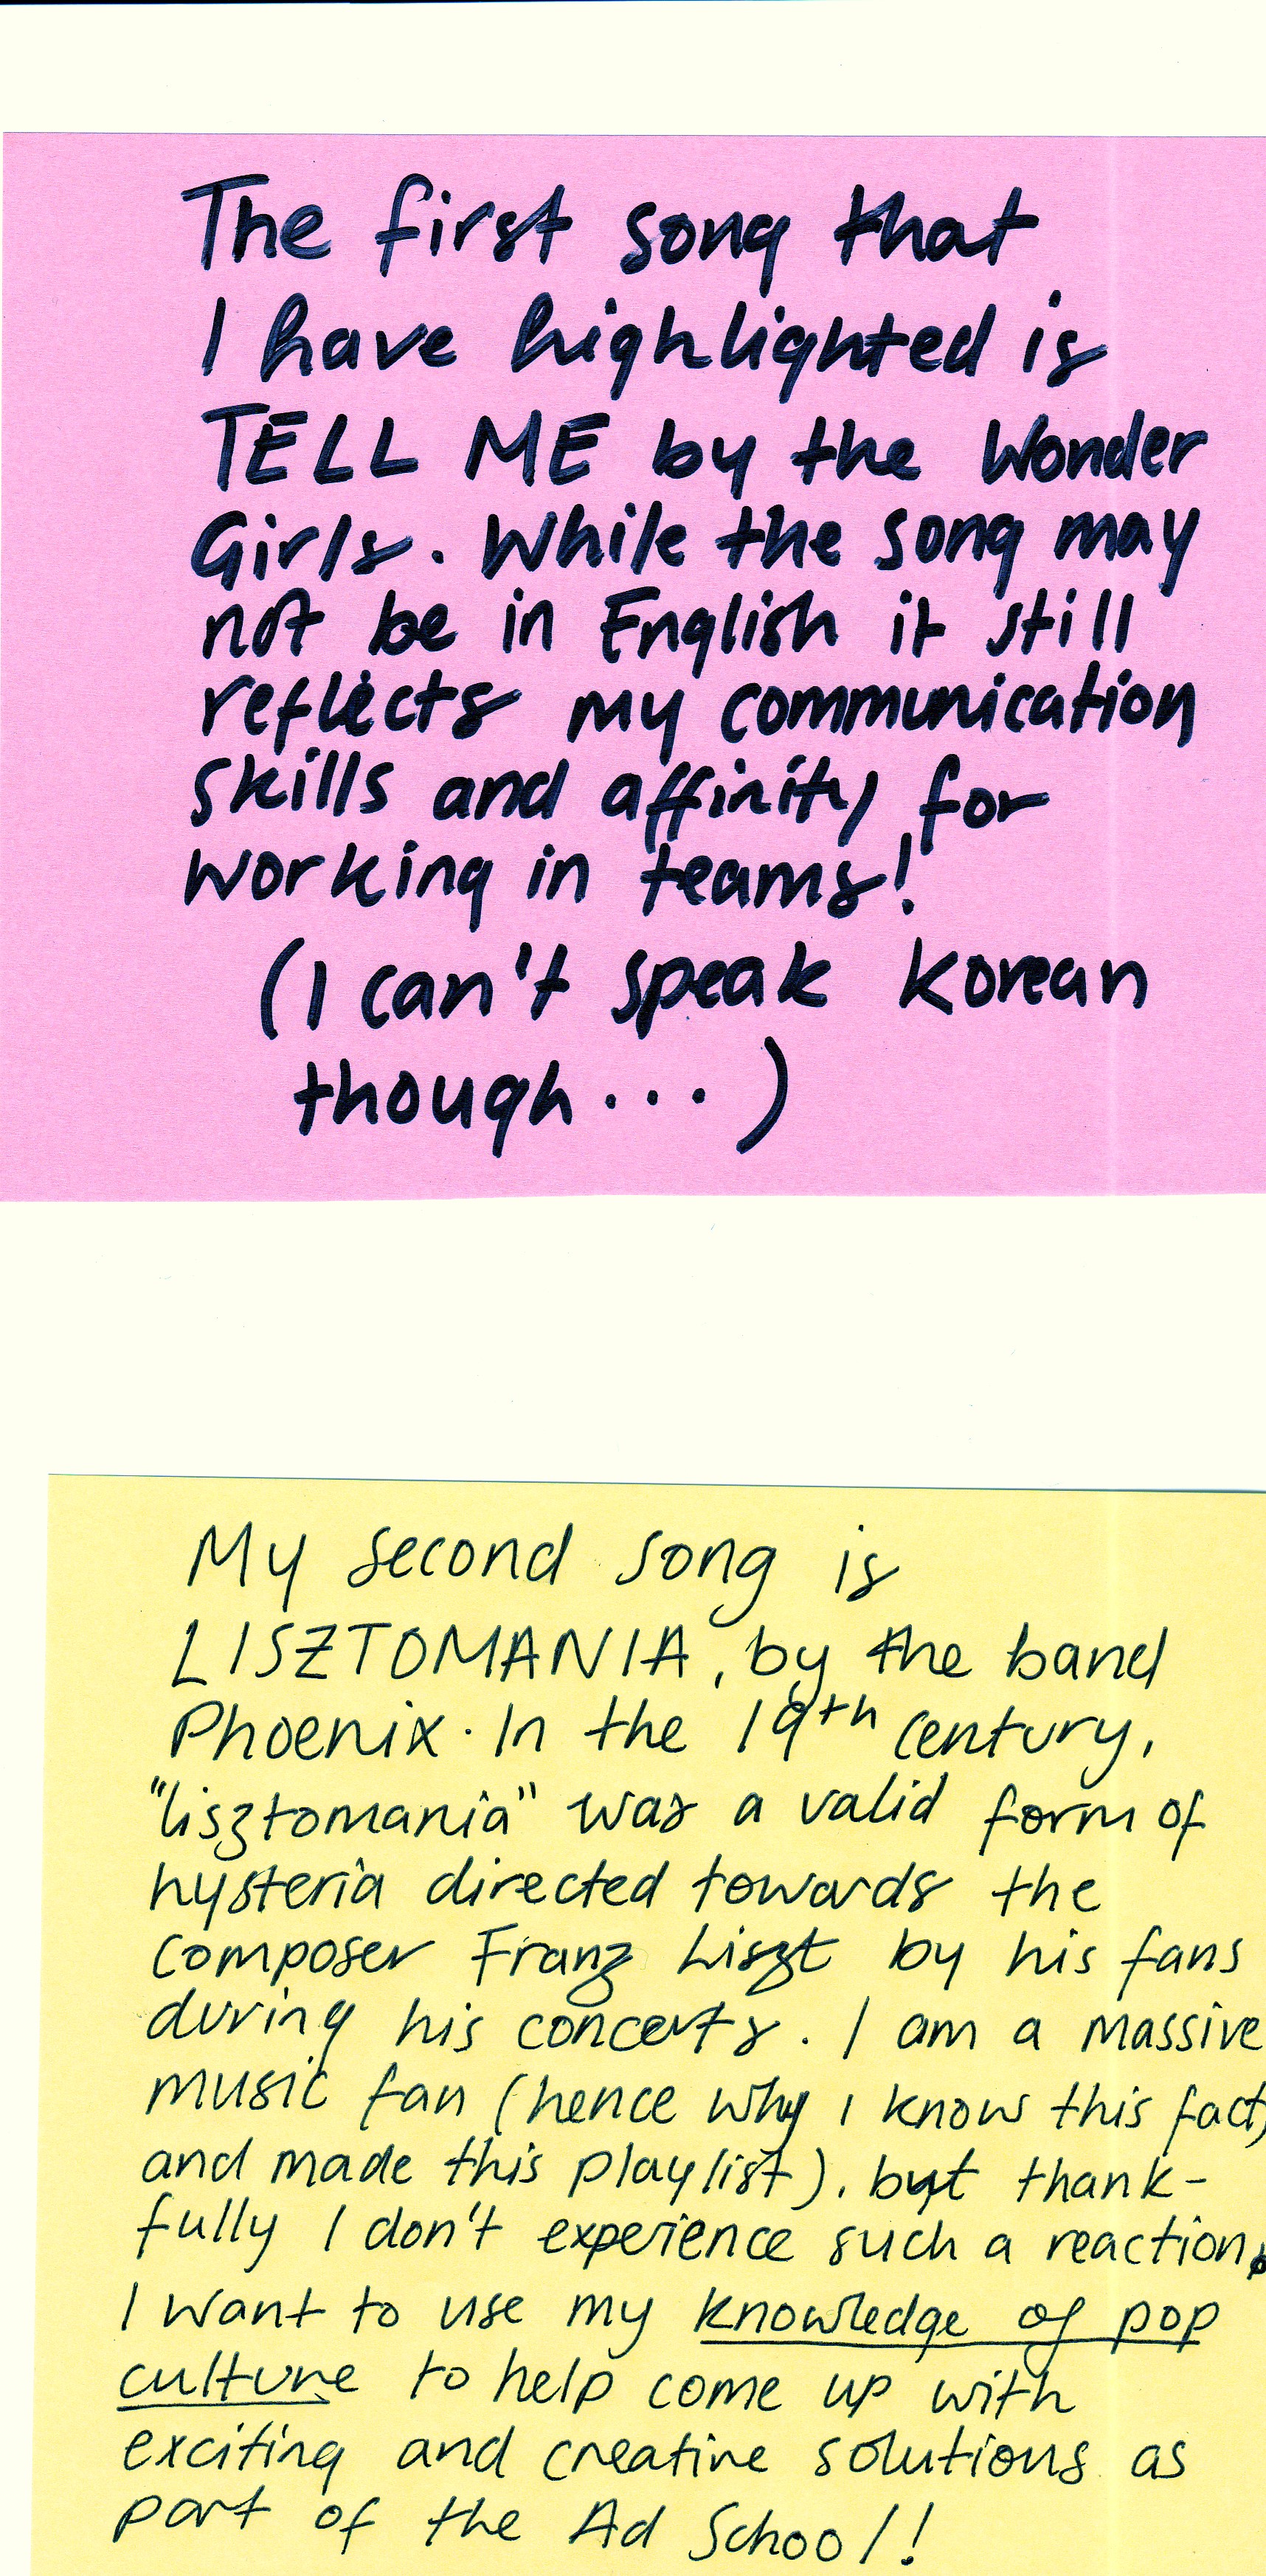 The first song that
I have highlighted is
TELL ME by the Wonder
Girls. While the song may
not be in English it still
reflects my communication
skills and affinity for
working in teams!
(I can't speak Korean
though...)
My second song is
LISZTOMANIA, by the band
Phoenix. In the 19th century,
"lisztomania" was a valid form of
hysteria directed towards the
composer Franz Liszt by his fans
during his concerts. I am a massive
music fan (hence why I know this fact,
and made this playlist), but thank-
fully I don't experience such a reaction.
I want to use my knowledge of pop
culture to help come up with
exciting and creative solutions as
part of the Ad School!